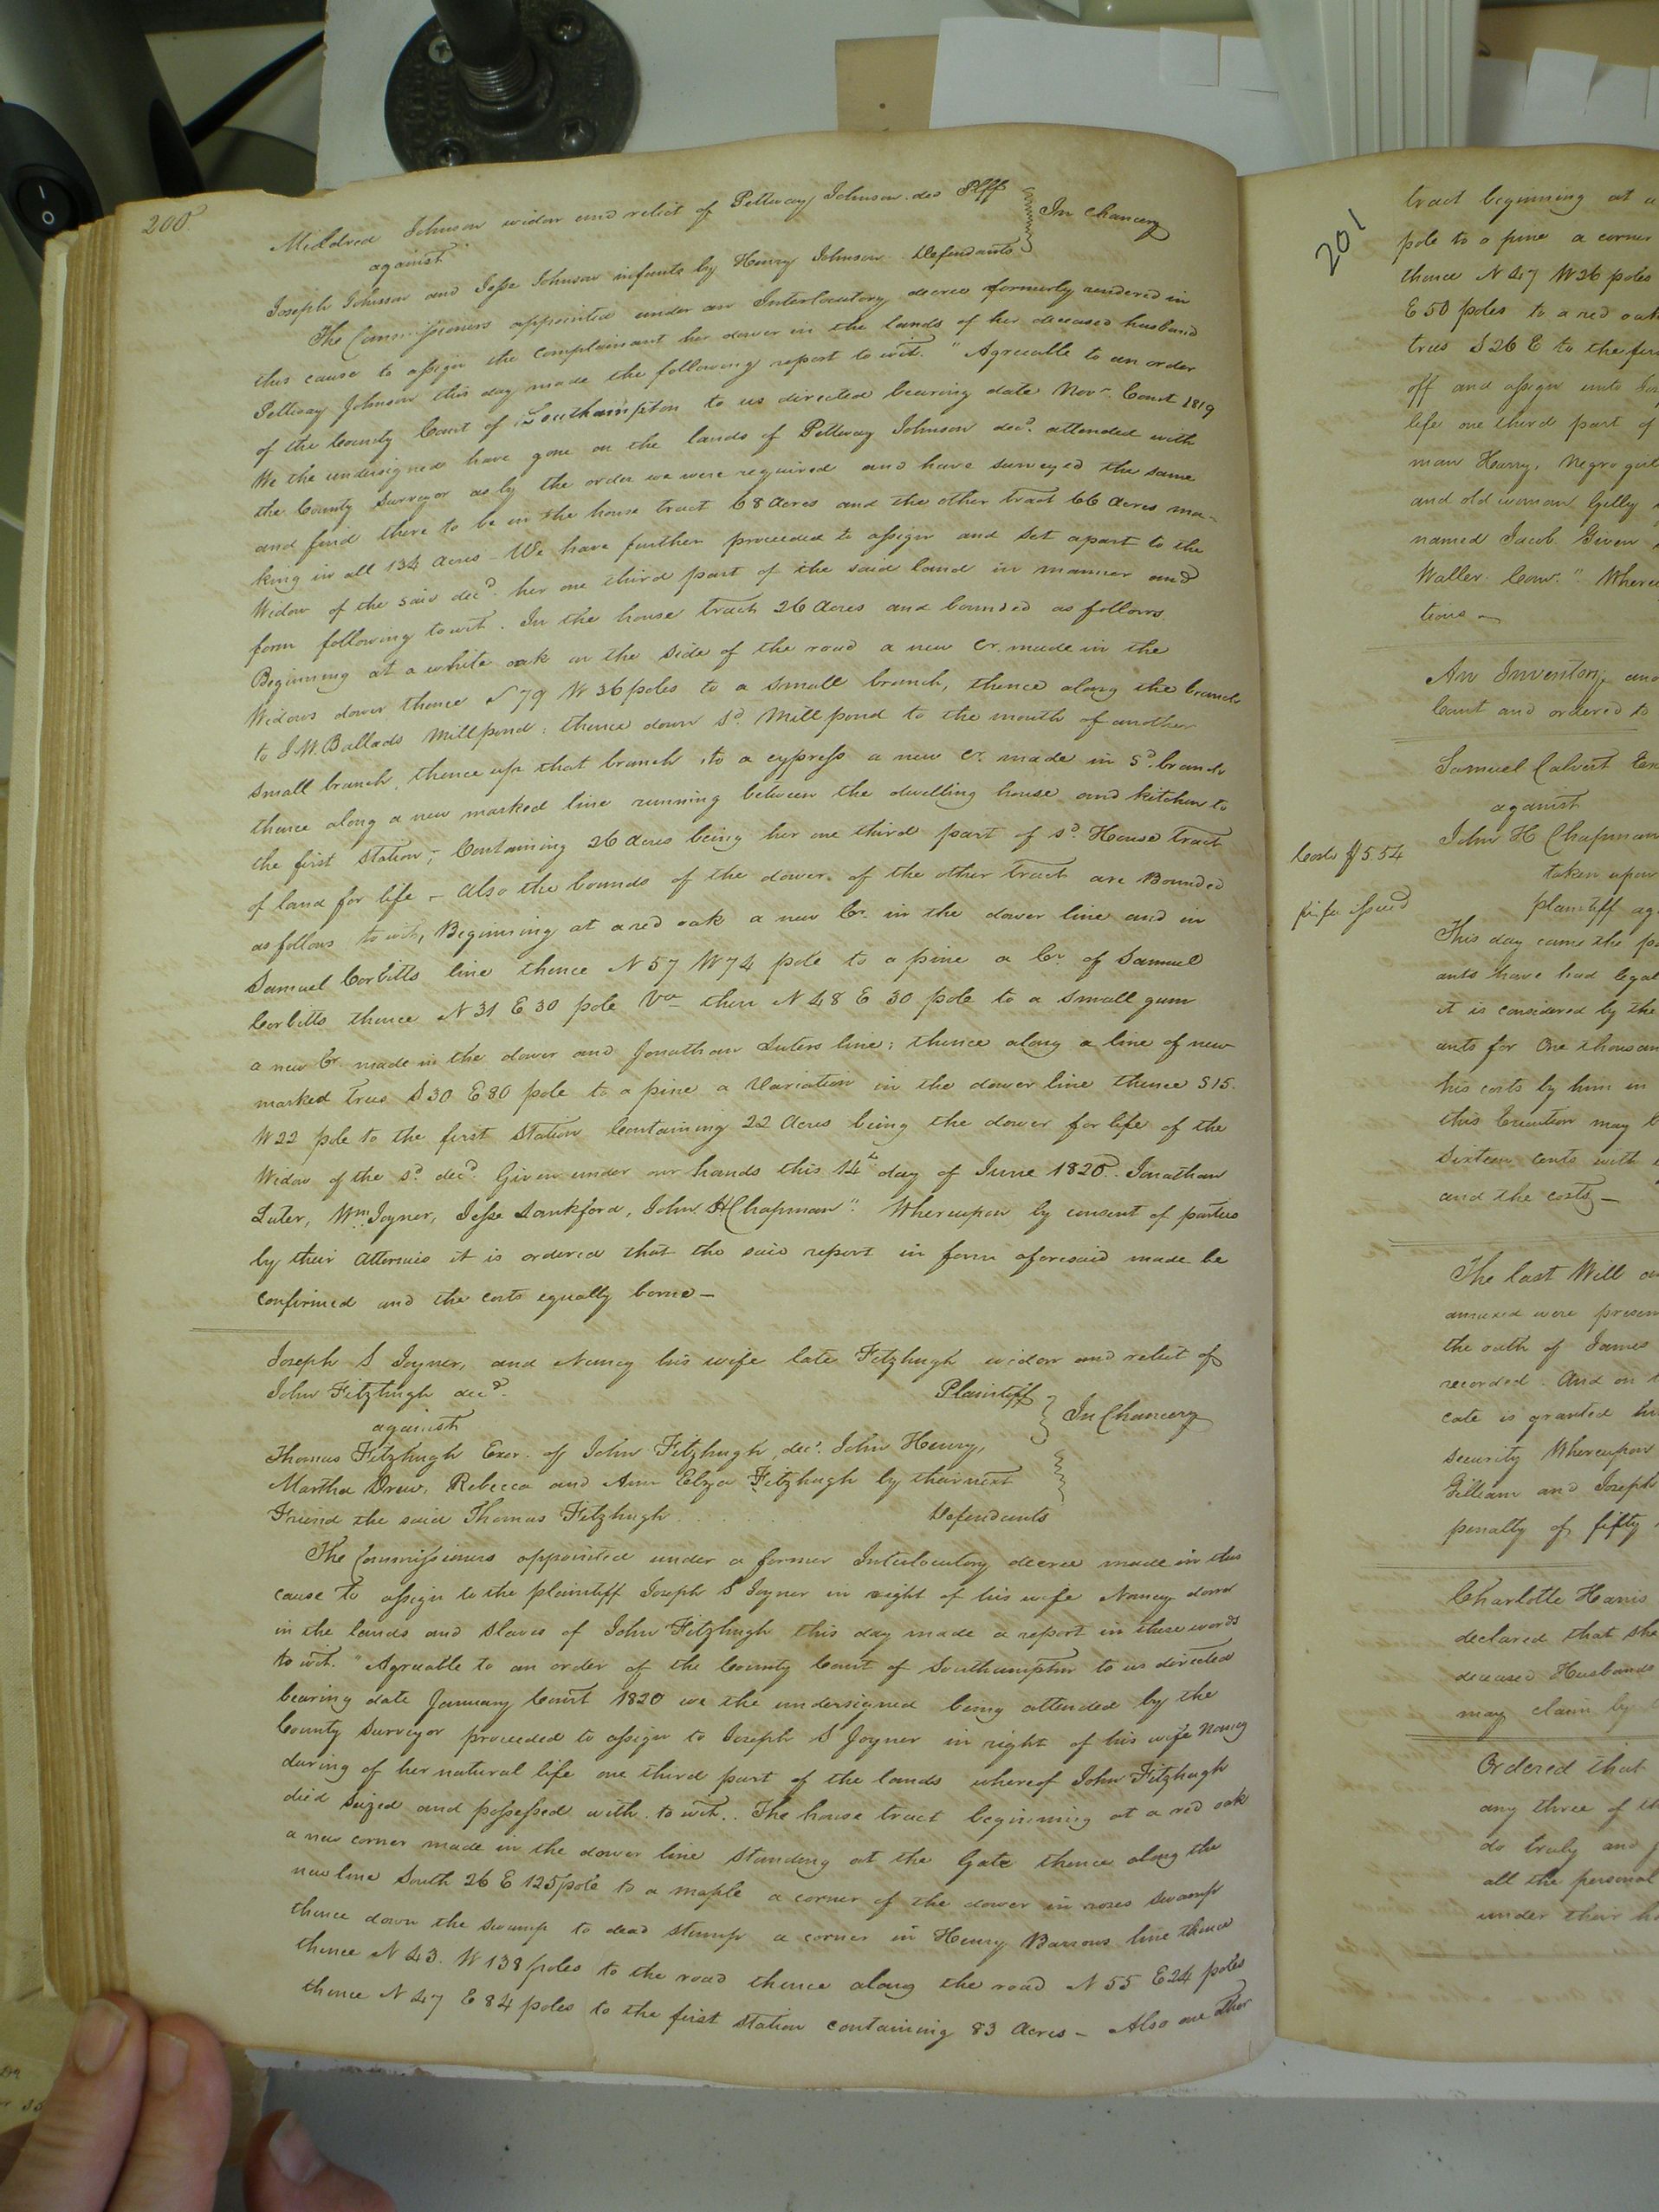 200
Mildred Johnson widow and relict of Pettway Johnson dec Plff
In Chancery
against
Joseph Johnson and Jesse Johnson infants by Henry Johnson Defendants
The Commissioners appointed under an Interlocutory decree formerly rendered in
this cause to assign the complainant her dower in the lands of her deceased husband
Pettway Johnson this day made the following report to wit. "Agreeable to an order
of the County Court of Southampton to us directed bearing date Novr. Court 1819
We the undersigned have gone on the lands of Pettway Johnson decd. attended with
the County Surveyor as by the order we were required and have surveyed the same
and find there to be in the house tract 68 acres and the other tract 66 acres ma-
king in all 134 acres – We have further proceeded to assign and set apart to the
Widow of the said decd. her one third part of the said land in manner and
form following to wit. In the house tract 26 acres and bounded as follows.
Beginning at a white oak on the side of the road a new Cr. made in the
Widows dower thence S 79 W 36 poles to a small branch, thence along the branch
to J.W. Ballads Millpond; thence down sd. Millpond to the mouth of another
small branch, thence up that branch to a cypress a new Cr. made in sd. branch
thence along a new marked line running between the dwelling house and kitchen to
the first station; Containing 26 acres being her one third part of sd. House tract
of land for life – Also the bounds of the dower of the other tract are Bounded
as follows to wit, Beginning at a red oak a new Cr. in the dower line and in
Samuel Corbitts line thence N 57 W 74 pole to a pine a Cr. of Samuel
Corbitts thence N 31 E 30 pole Va then N 48 E 30 pole to a small gum
a new Cr. made in the dower and Jonathan Luters line; thence along a line of new
marked trees S 30 E 80 pole to a pine a Variation in the dower line thence S 15.
W 22 pole to the first station Containing 22 acres being the dower for life of the
Widow of the sd. decd. Given under our hands this 14th day of June 1820. Jonathan
Luter, Wm. Joyner, Jesse Lankford, John H Chapman". Whereupon by consent of parties
by their Attornies it is ordered that the said report in form aforesaid made be
confirmed and the costs equally borne –
Joseph S Joyner, and Nancy his wife late Fitzhugh widow and relict of
John Fitzhugh decd. Plaintiff
In Chancery
against
Thomas Fitzhugh Exor. of John Fitzhugh, decd. John Henry,
Martha Drew, Rebecca and Ann Elza Fitzhugh by their next
Friend the said Thomas Fitzhugh Defendants
The Commissioners appointed under a former Interlocutory decree made in this
cause to assign to the plaintiff Joseph S Joyner in right of his wife Nancy
in the lands and slaves of John Fitzhugh this day made a report in these words
to wit. "Agreeable to an order of the County Court of Southampton to us directed
bearing date January Court 1820 we the undersigned being attended by the
County Surveyor proceeded to assign to Joseph S Joyner in right of his wife Nancy
during of her natural life one third part of the lands whereof John Fitzhugh
died seized and possessed with to wit.. The house tract beginning at a red oak
a new corner made in the dower line standing at the Gate thence along the
new line South 26 E 125 pole to a maple a corner of the dower in roses swamp
thence down the swamp to dead stump a corner in Henry Barrows line thence
thence N 43. W 138 poles to the road thence along the road N 55 E 24 poles
thence N 47 E 84 poles to the first station containing 83 acres – Also one other
201
tract beginning at a
pole to a pine a corner
thence N 47 W 26 poles
E 50 poles to a red oak
trees S 26 E to the
off and assign unto
life one third part of
man Harry, Negro girl
and old woman Gilly
named Jacob. Given
Waller. Comr." Where
tions –
An Inventory, and
Court and ordered to
Samuel Calvert
against
John H Chapman
taken upon
plaintiff
Costs $5.54
fi fa issued
This day came the
ants have had legal
it is considered by the
ants for One thousan
his costs by him in
this Execution may
Sixteen cents with
and the costs –
The last Will
annexed were presen
the oath of James
recorded. And on
cate is granted
security Whereupon
Gilliam and Joseph
penalty of fifty
Charlotte Harris
declared that she
deceased Husbands
may claim by
Ordered that
any three of
do truly and
all the personal
under their